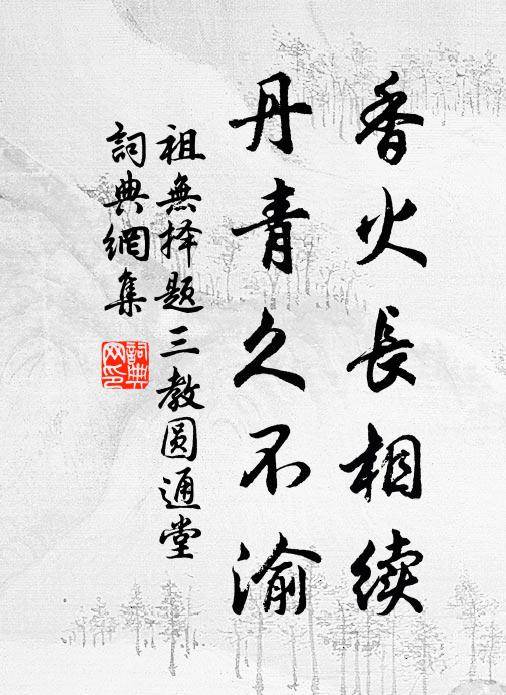 香火長相續
丹青久不渝
祖無择題三教圆通堂
詞典網集
詞典網印